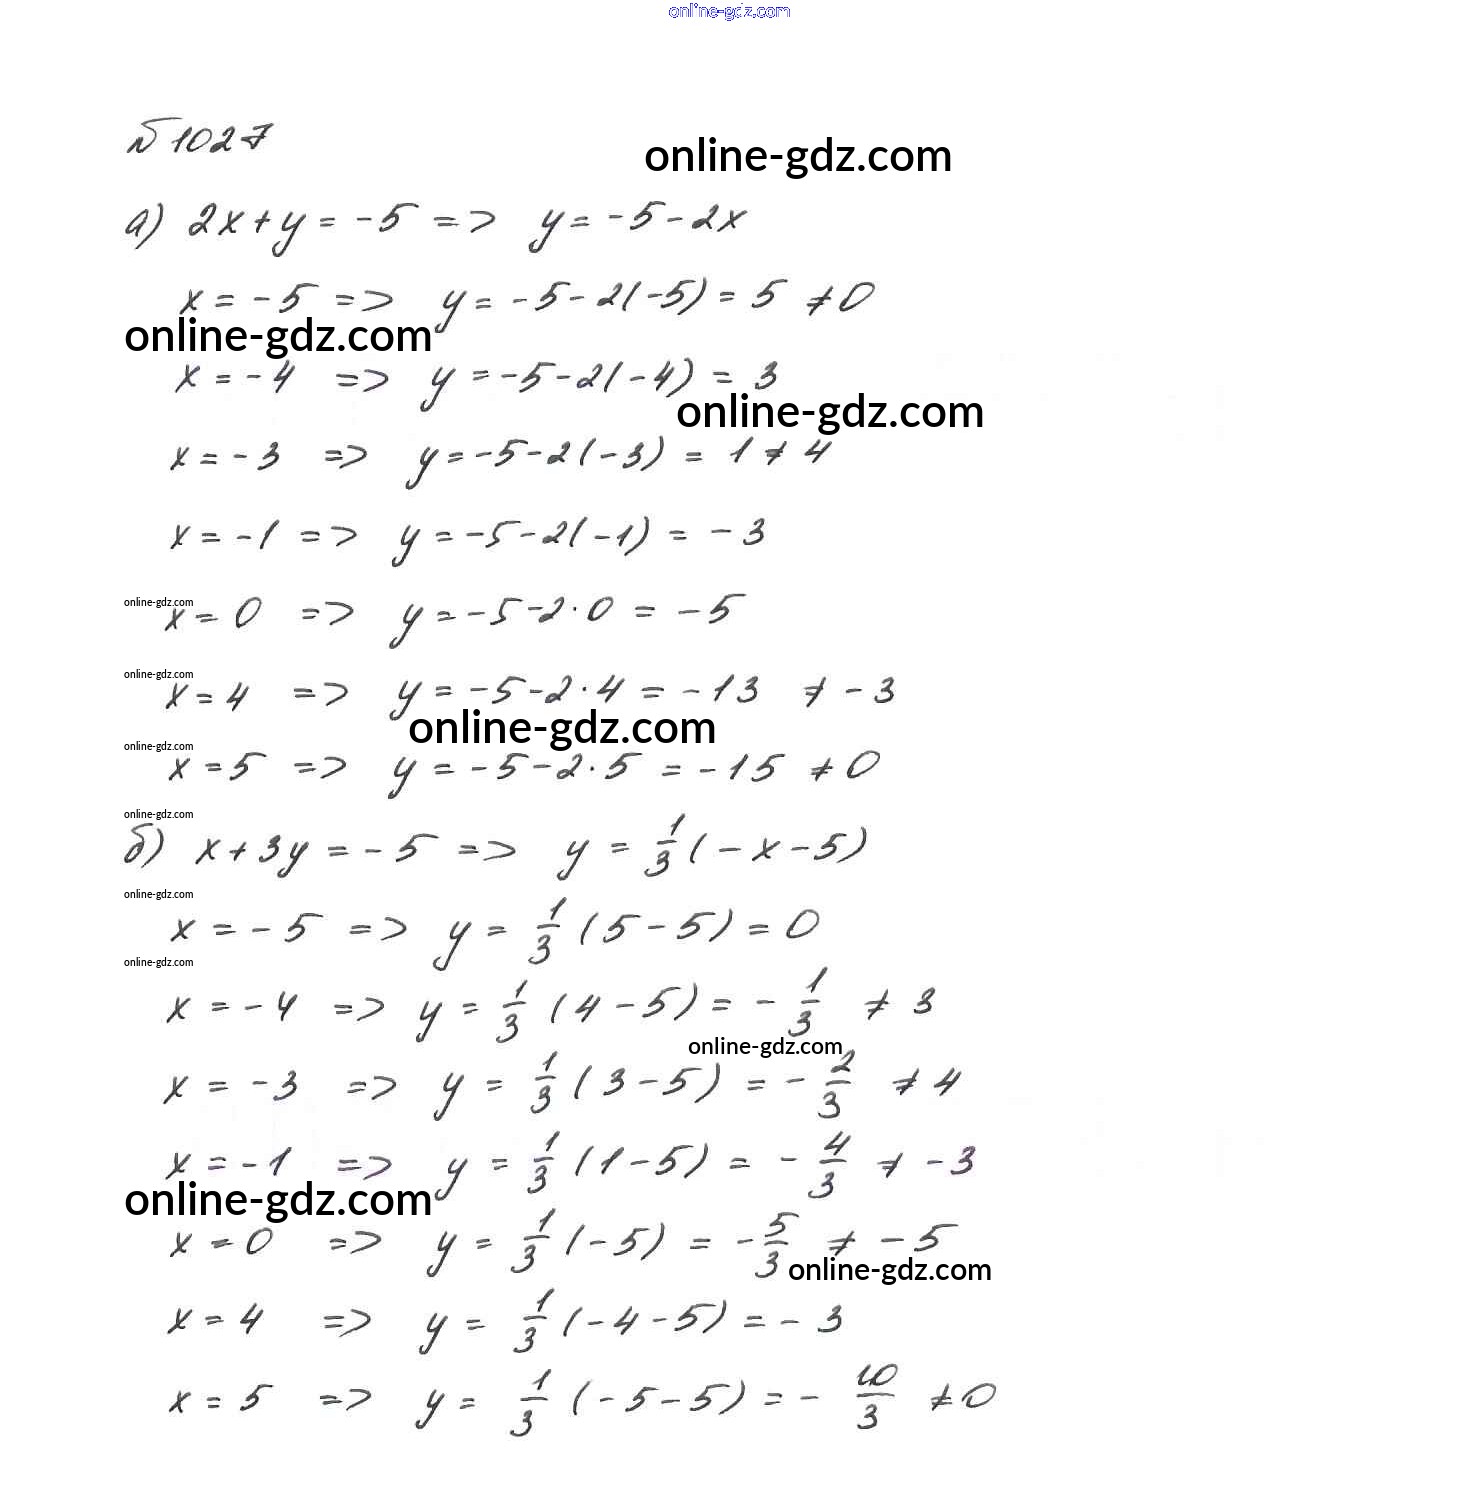 online-gdz.com
№ 1027
online-gdz.com
а) 2x + y = -5 => y = -5 - 2x
x = -5 => y = -5 - 2(-5) = 5 ≠ 0
online-gdz.com
x = -4 => y = -5 - 2(-4) = 3
online-gdz.com
x = -3 => y = -5 - 2(-3) = 1 ≠ 4
x = -1 => y = -5 - 2(-1) = -3
online-gdz.com
x = 0 => y = -5 - 2·0 = -5
online-gdz.com
x = 4 => y = -5 - 2·4 = -13 ≠ -3
online-gdz.com
online-gdz.com
x = 5 => y = -5 - 2·5 = -15 ≠ 0
online-gdz.com
б) x + 3y = -5 => y = 1/3 (-x - 5)
online-gdz.com
x = -5 => y = 1/3 (5 - 5) = 0
online-gdz.com
x = -4 => y = 1/3 (4 - 5) = -1/3 ≠ 3
online-gdz.com
x = -3 => y = 1/3 (3 - 5) = -2/3 ≠ 4
x = -1 => y = 1/3 (1 - 5) = -4/3 ≠ -3
online-gdz.com
x = 0 => y = 1/3 (-5) = -5/3 ≠ -5
online-gdz.com
x = 4 => y = 1/3 (-4 - 5) = -3
x = 5 => y = 1/3 (-5 - 5) = -10/3 ≠ 0